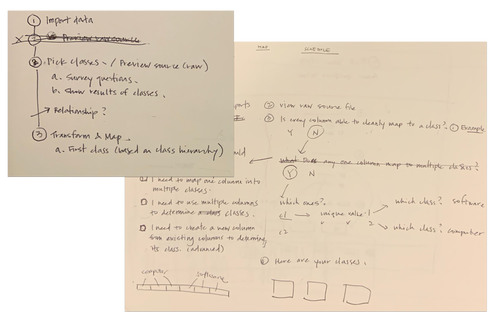 ① Import data
Preview
② Pick classes / Preview source (raw)
a. Survey questions.
b. Show results of classes.
Relationship?
③ Transform & Map
a. First class (based on class hierarchy)
MAP
② View raw source file
③ Is every column able to cleanly map to a class? ① Example
Y N
any one column map to multiple classes?
Y N
I need to map one column into
multiple classes
I need to use multiple columns
to determine classes.
I need to create a new column
from existing columns to determine
its class. (advanced)
which ones?
c1 unique value 1 which class? software
2 which class? computer
c2
Here are your classes.
computer software